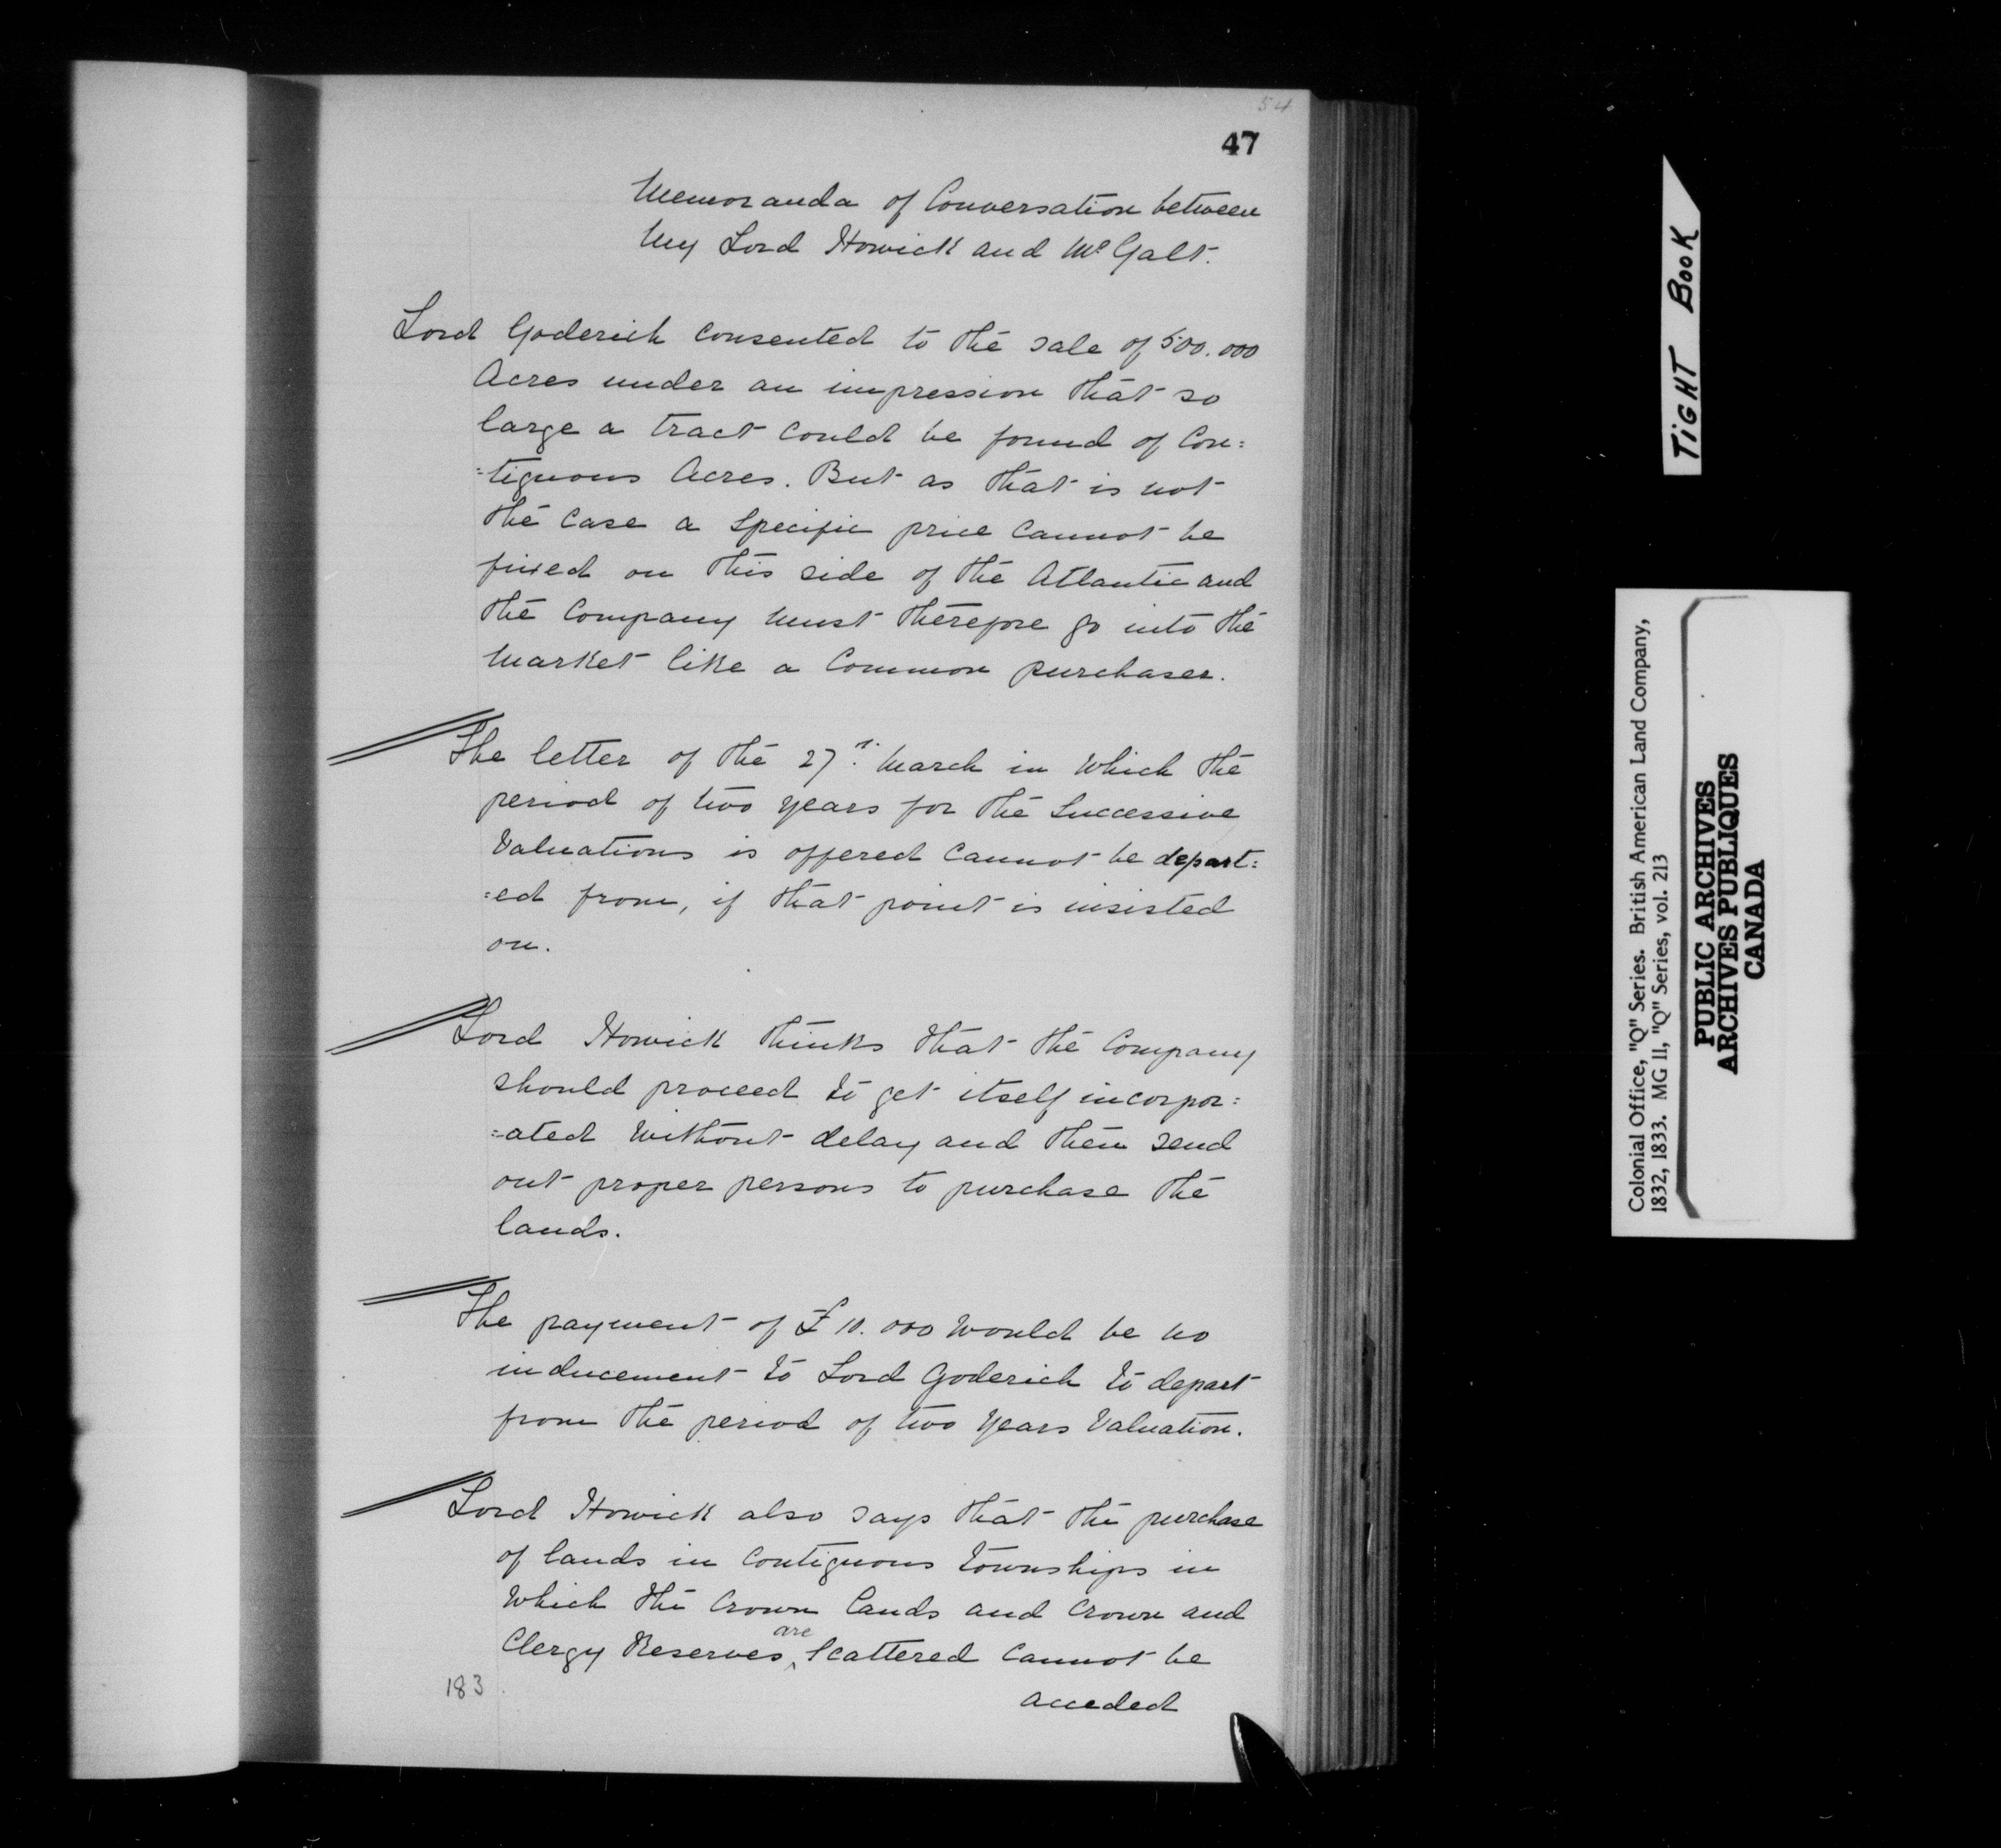 54
47
Memoranda of Conversation between
My Lord Howick and Mr Galt.
Lord Goderich consented to the sale of 500.000
Acres under an impression that so
large a tract could be found of Con:
:tiguous Acres. But as that is not
the Case a specific price cannot be
fixed on this side of the Atlantic and
the Company must therefore go into the
market like a Common purchaser.
The letter of the 27th March in which the
period of two years for the Successive
Valuations is offered cannot be depart:
:ed from, if that point is insisted
on.
Lord Howick thinks that the Company
should proceed to get itself incorpor:
:ated without delay and then send
out proper persons to purchase the
lands.
The payment of £10.000 would be no
inducement to Lord Goderich to depart
from the period of two years Valuation.
Lord Howick also says that the purchase
of lands in Contiguous townships in
which the Crown lands and Crown and
Clergy Reserves ^are Scattered cannot be
acceded
183
TIGHT BOOK
Colonial Office, "Q" Series. British American Land Company,
1832, 1833. MG 11, "Q" Series, vol. 213
PUBLIC ARCHIVES
ARCHIVES PUBLIQUES
CANADA